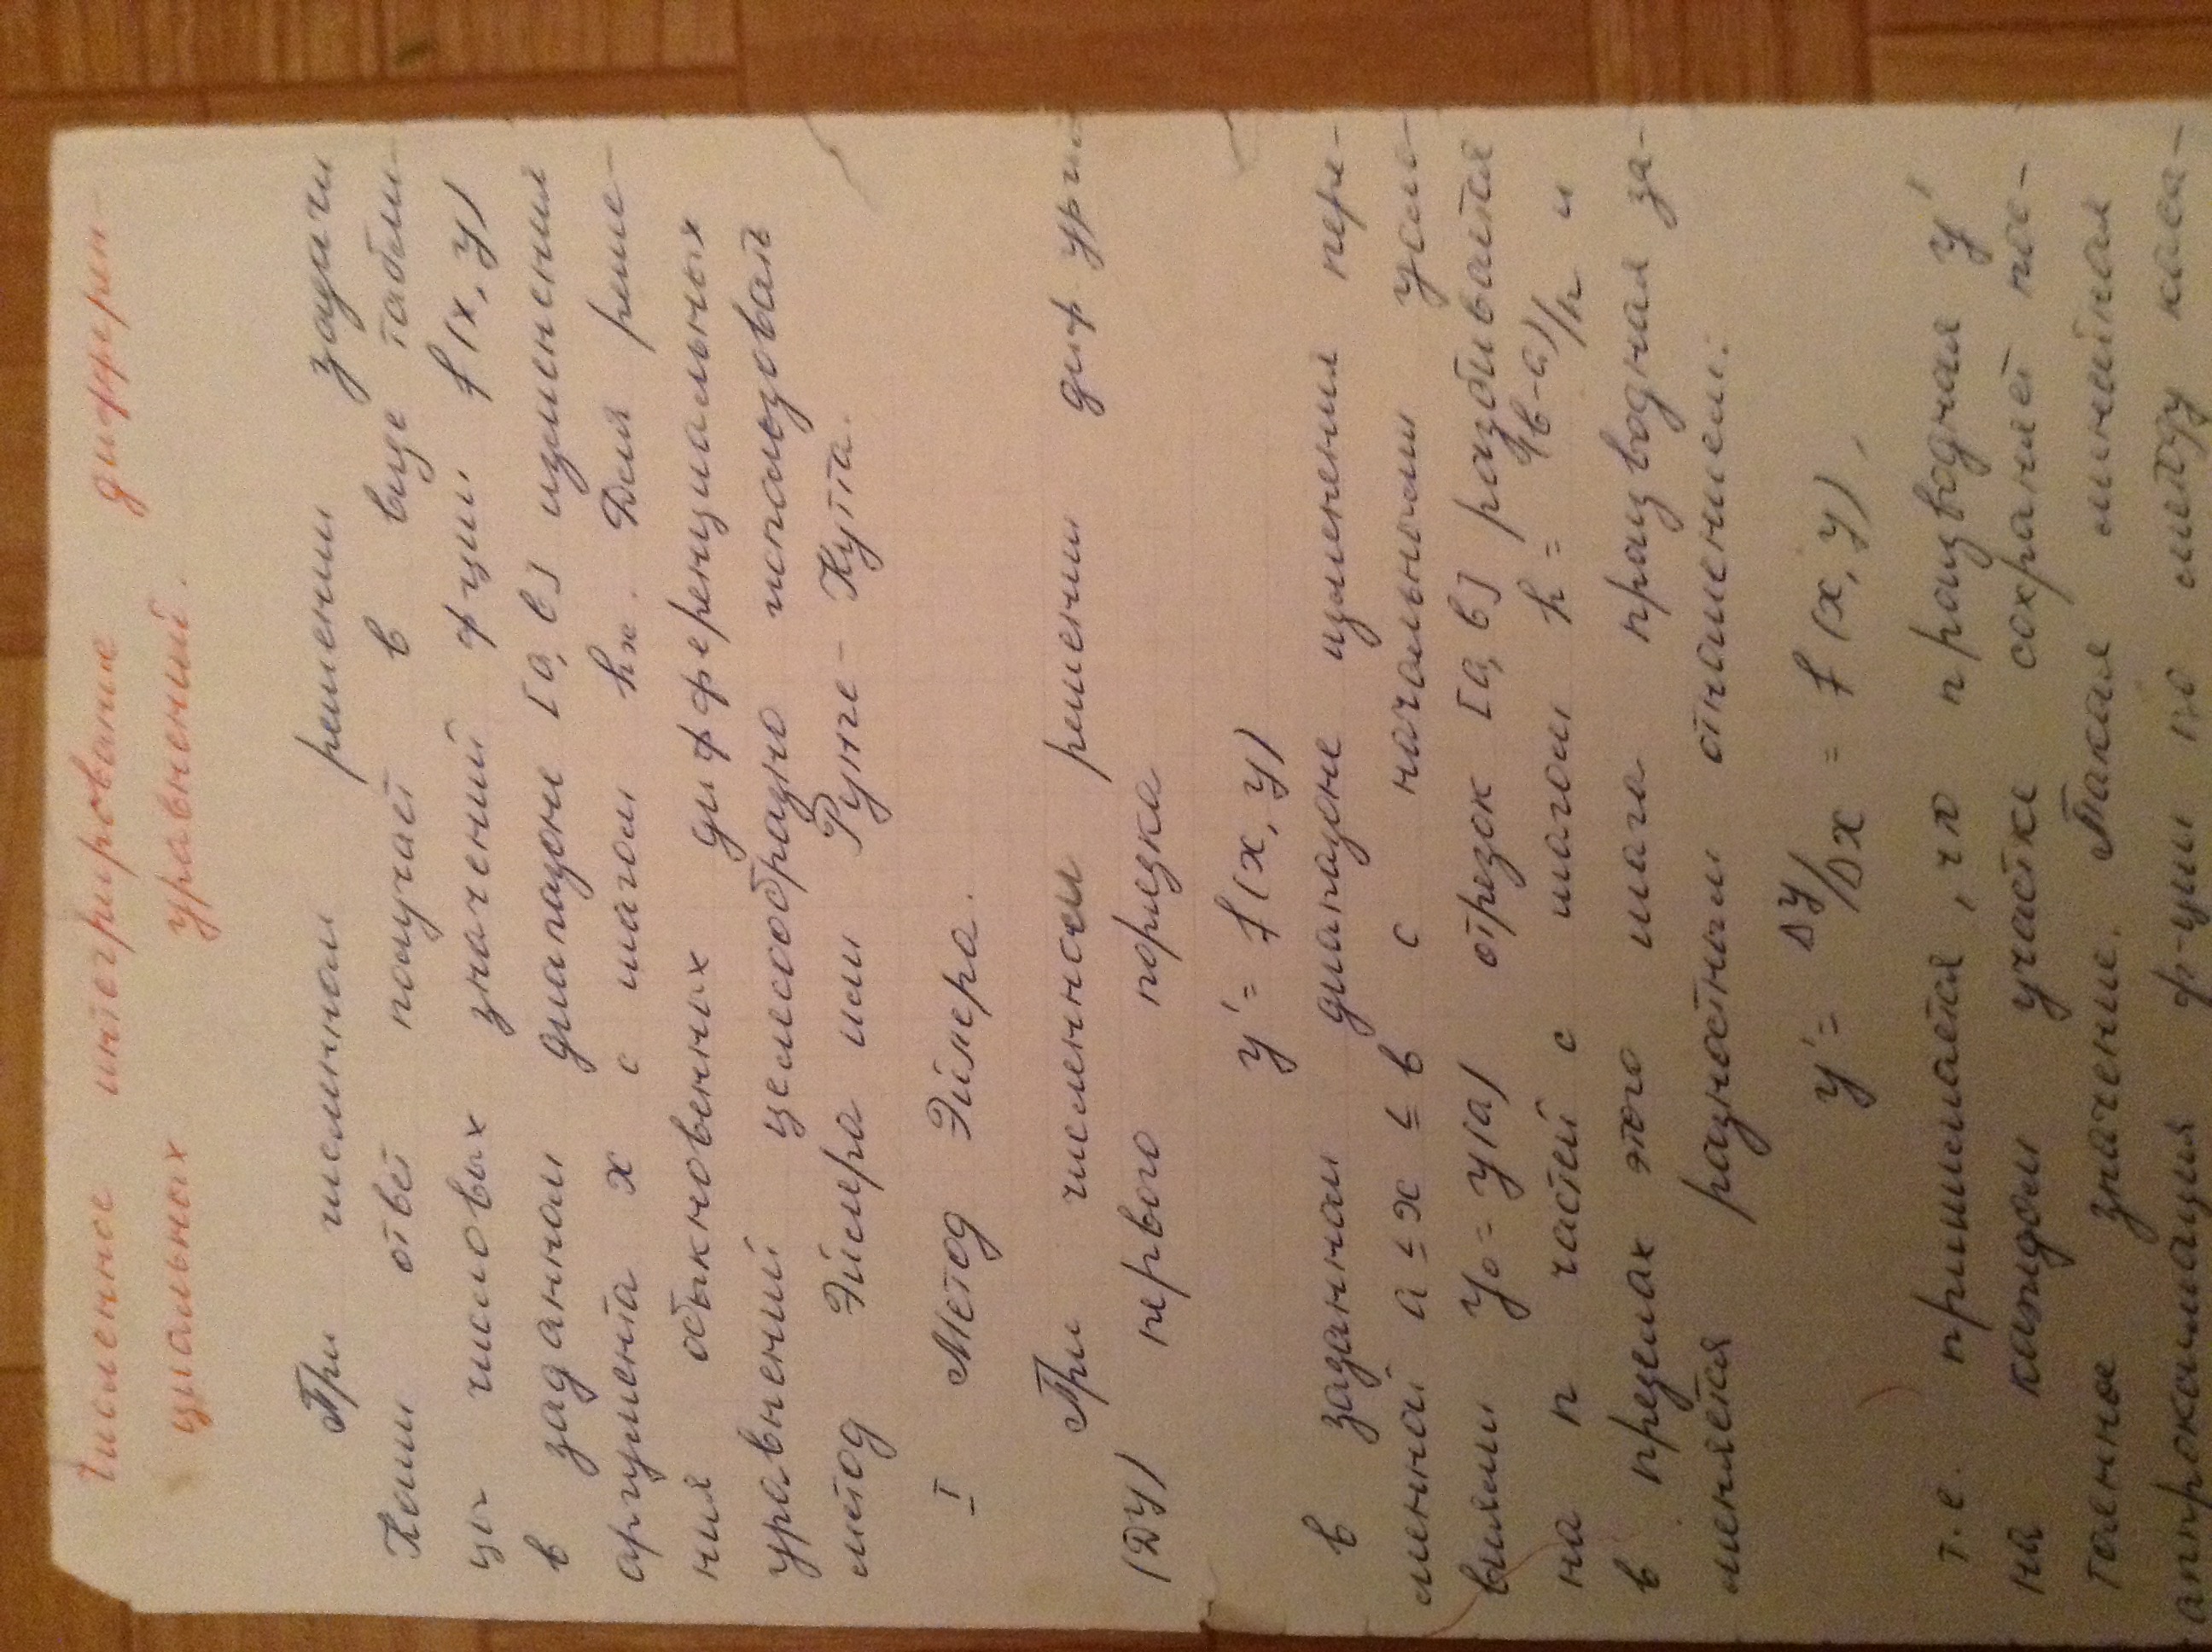 Численное интегрирование дифферен-
циальных уравнений.
При численном решении задачи
Коши ответ получает в виде табли-
цы числовых значений ф ции f(x, y)
в заданном диапазоне [a, b] изменения
аргумента x с шагом hx. Для реше-
ния обыкновенных дифференциальных
уравнений целесообразно использовать
метод Эйлера или Рунге - Кутта.
I Метод Эйлера.
При численном решении диф.
(ДУ) первого порядка
y' = f(x, y)
в заданном диапазоне изменения пере-
менной a ≤ x ≤ b с начальными усло-
виями y₀ = y(a) отрезок [a, b] разбивается
на n частей с шагом h = (b-a)/n и
в пределах этого шага производная за-
меняется разностным отношением:
y' = Δy/Δx = f(x, y),
т.е. принимается, что производная y'
на каждом участке сохраняет пос-
тоянное значение. Такая линейная
аппроксимация ф-ции по методу каса-